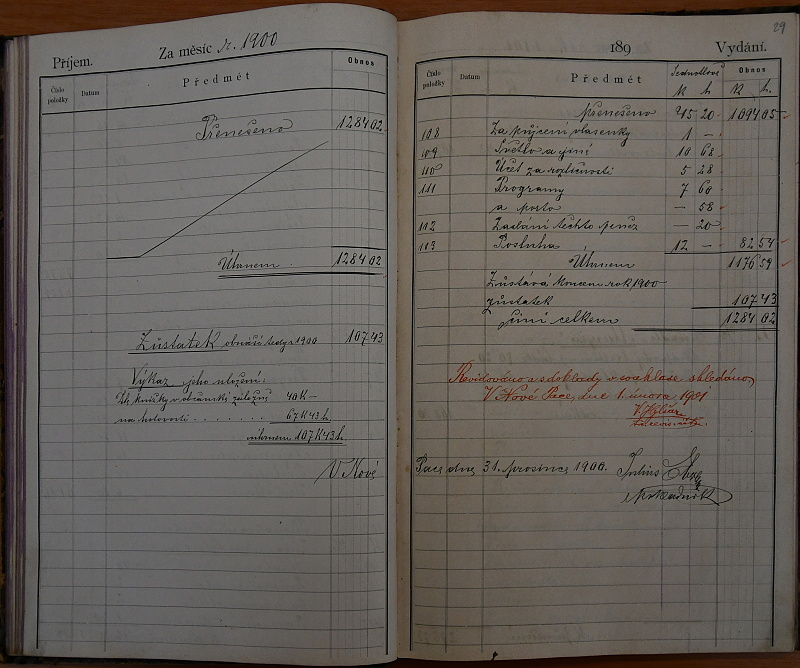 Příjem.
Za měsíc r. 1900
Číslo položky
Datum
Předmět
Obnos
Přenešeno 1284 02
Úhrnem 1284 02
Zůstatek obnáší tedy 1900 107 43
Výkaz jeho uložení:
knížky v občanské záložně 40 K —
na hotovosti . . . . . 67 K 43 h.
úhrnem 107 K 43 h.
V Nové
29
189
Vydání.
Číslo položky
Datum
Předmět
Jednotlivě
K h
Obnos
K h.
Přenešeno 45 20 1094 05
108 Za půjčení vlasenky 1 —
109 Světlo a jiné 10 68
110 Účet za různosti 5 28
111 Programy 7 60
a porto — 58
112 Zaslání těchto peněz — 20
113 Posluha 12 — 82 54
Úhrnem 1176 59
Zůstává koncem rok 1900
zůstatek 107 43
činí celkem 1284 02
Revidováno a s doklady v souhlase shledáno,
V Nové Pace, dne 1. února 1901
Pace, dne 31. prosince 1900. Julius
pokladník